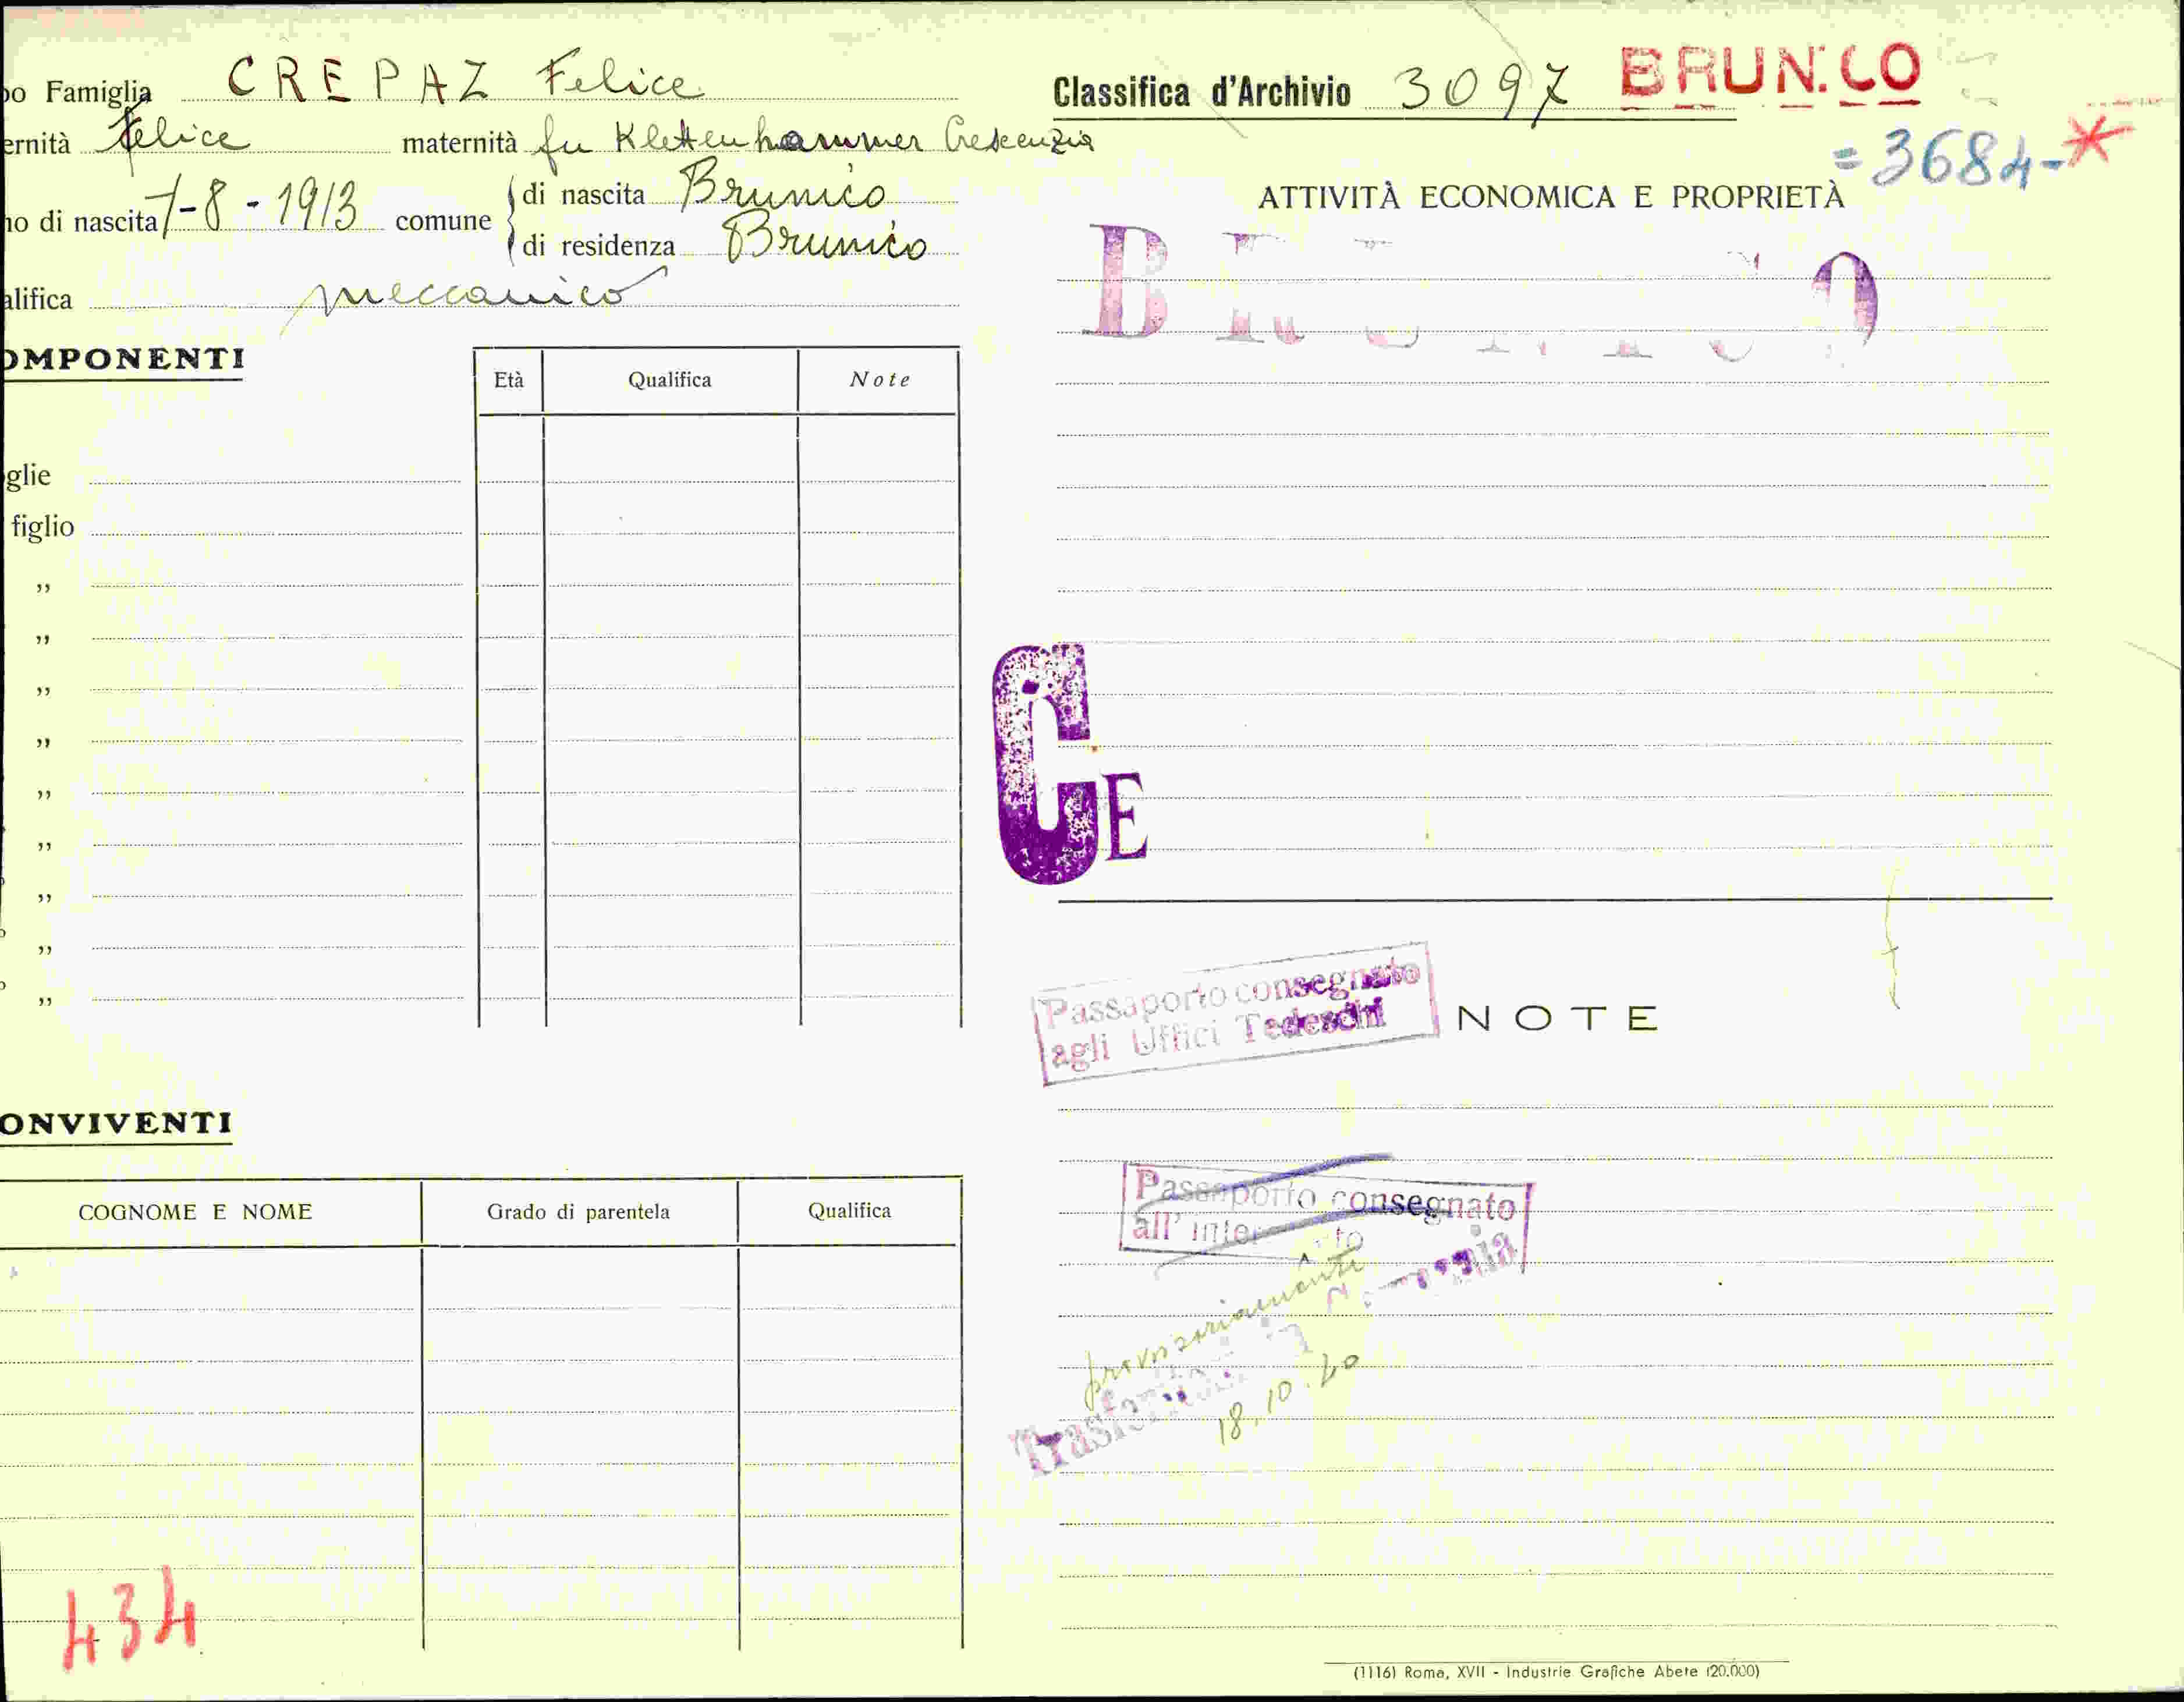 po Famiglia CREPAZ Felice
ernità felice maternità fu Klettenhammer Crescenzia
no di nascita 7-8-1913 comune di nascita Brunico
di residenza Brunico
alifica meccanico
OMPONENTI
Età Qualifica Note
glie
figlio
”
”
”
”
”
”
”
”
”
ONVIVENTI
COGNOME E NOME Grado di parentela Qualifica
434
Classifica d'Archivio 3097 BRUNICO
=3684-*
ATTIVITÀ ECONOMICA E PROPRIETÀ
BRUNICO
CE
Passaporto consegnato
agli Uffici Tedeschi
NOTE
Passaporto consegnato
all'
provvisoriamente
18.10.40
(1116) Roma, XVII - Industrie Grafiche Abete (20.000)